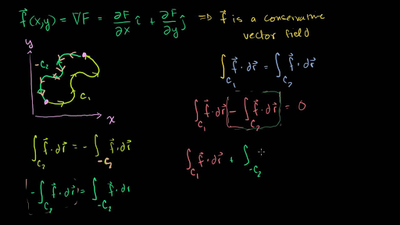 f⃗(x,y) = ∇F = ∂F/∂x î + ∂F/∂y ĵ ⇒ f⃗ is a conservative
vector field
y
-C₂
C₁
x
∫_C₁ f⃗·dr⃗ = ∫_C₂ f⃗·dr⃗
∫_C₁ f⃗·dr⃗ - ∫_C₂ f⃗·dr⃗ = 0
∫_C₂ f⃗·dr⃗ = - ∫_-C₂ f⃗·dr⃗
∫_C₁ f⃗·dr⃗ + ∫_-C₂
- ∫_C₂ f⃗·dr⃗ = ∫_-C₂ f⃗·dr